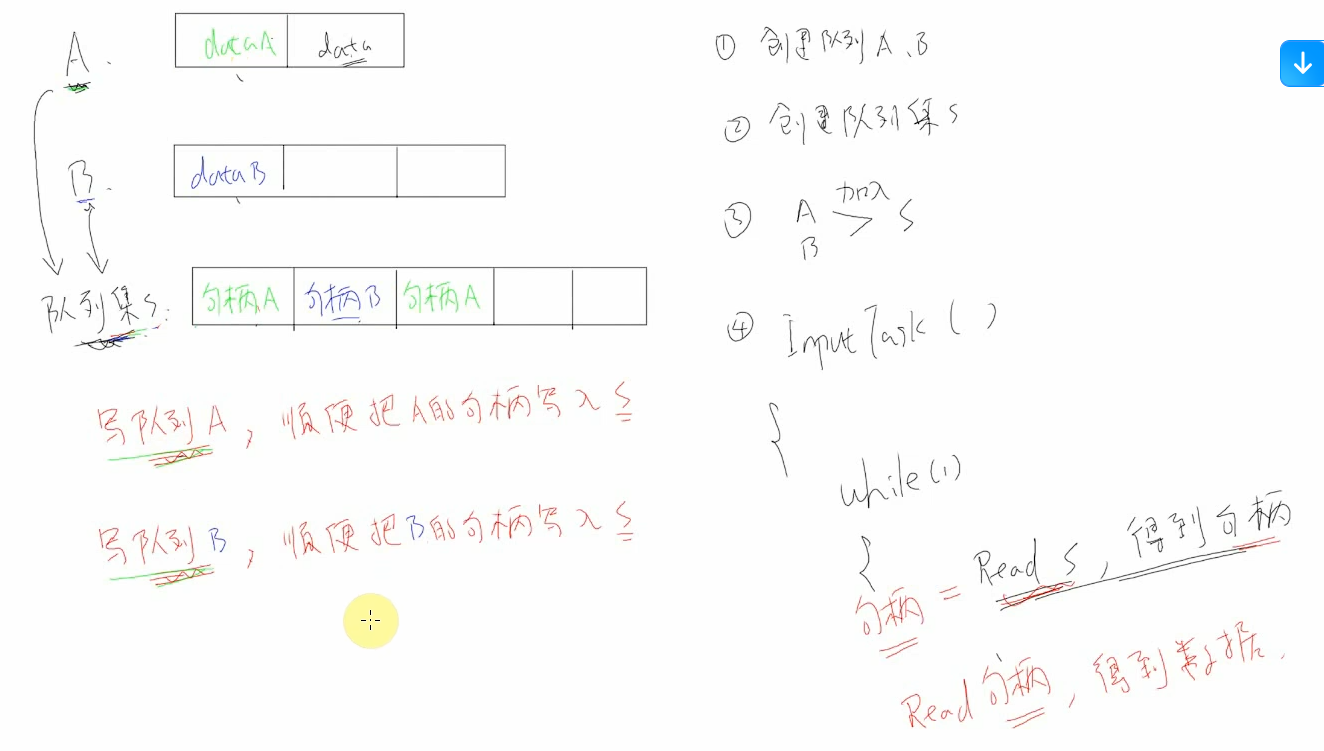 A.
dataA data
B.
dataB
队列集S:
句柄A 句柄B 句柄A
写队列A, 顺便把A的句柄写入S
写队列B, 顺便把B的句柄写入S
① 创建队列A、B
② 创建队列集S
③ A 加入 S
B
④ InputTask()
{
while(1)
{
句柄 = Read S, 得到句柄
Read句柄, 得到数据.